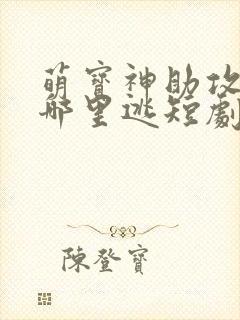 萌寶神助攻
哪里逃短劇
陳登寶